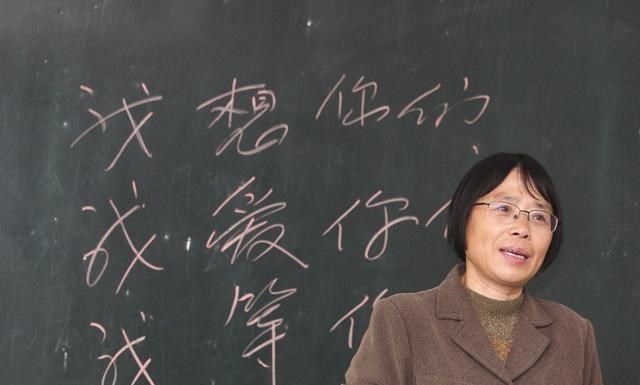 我想你们
我爱你
我等你